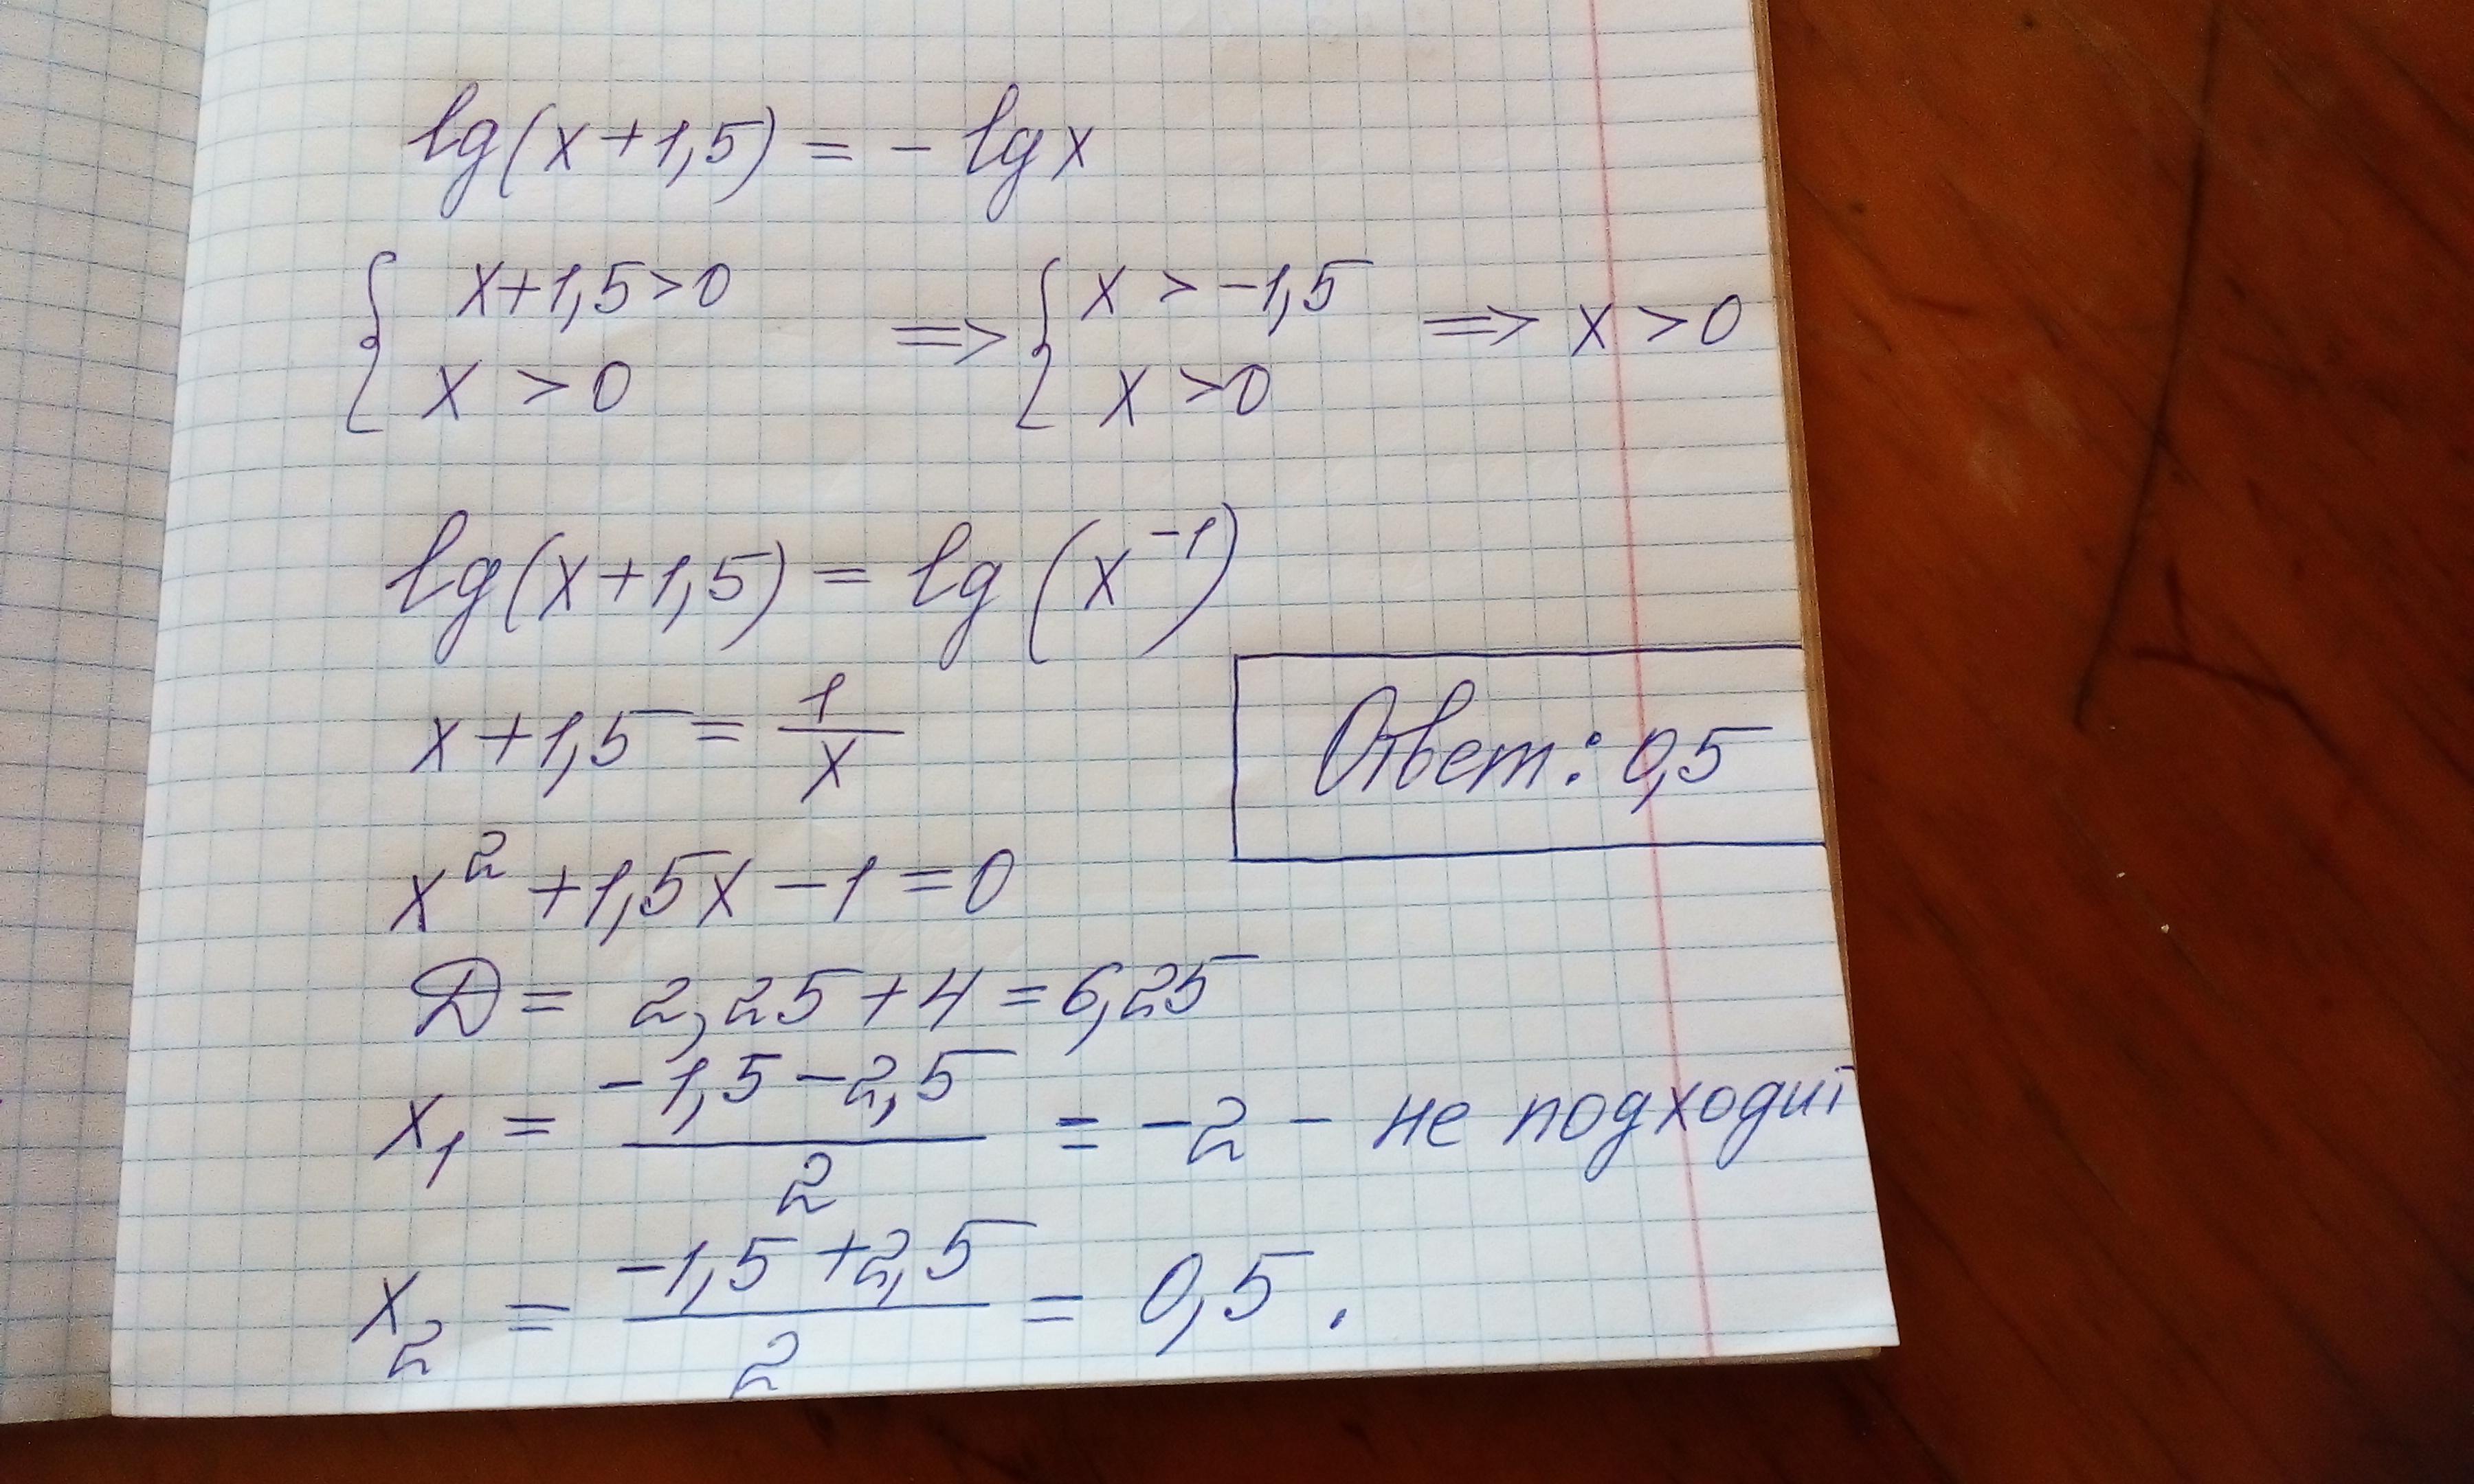 lg(x+1,5) = - lg x
{ x+1,5>0 x > 0 => { x > -1,5 x >0 => x >0
lg(x+1,5) = lg (x⁻¹)
x+1,5 = 1/x
Ответ: 0,5
x² +1,5x -1 =0
D = 2,25+4 =6,25
x₁ = (-1,5-2,5)/2 = -2 - не подходит
x₂ = (-1,5+2,5)/2 = 0,5.